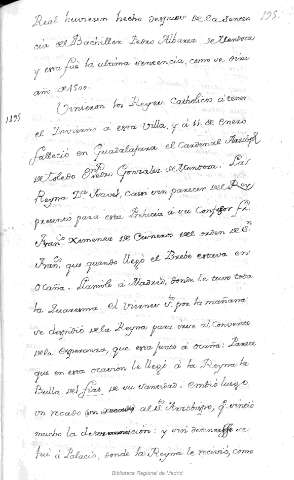 195.
Real huviesen hecho despues de la senten
cia del Bachiller Pedro Albarez de Mendoza
y esta fué la ultima sentencia, como se dixo
año de 1500.
1495 Vinieron los Reyes Catholicos á tener
el Invierno a esta Villa, y á 11. de Enero
falleció en Guadalajara el Cardenal Arzobpo.
de Toledo Dn. Pedro Gonzalez de Mendoza. La
Reyna Da. Isavel, con parecer del Rey
presento para esta Iglesia á su Confesor Fr.
Franco. Ximenez de Cisneros del orden de S.
Franco. que quando llegó el Brebe estava en
Ocaña. Llamole á Madrid, donde le tuvo toda
la Quaresma el Viernes Sto. por la mañana
se despidió de la Reyna para irse al Convento
de la Esperanza, que esta junto á Ocaña: Parece
que en esta ocasion le llegó á la Reyna la
Bulla del fiat de su Santidad. embió luego
un recado al Sr. Arzobispo, q. sintió
mucho la: y sin
fué á Palacio, donde la Reyna le recivió, como
Biblioteca Regional de Madrid